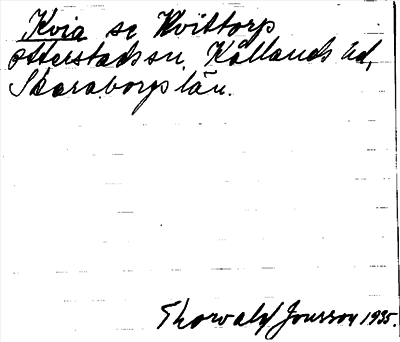 Kvia se Kvittorp
Otterstads sn, Kållands hd,
Skaraborgs län.
Thorwald Jonsson 1935.